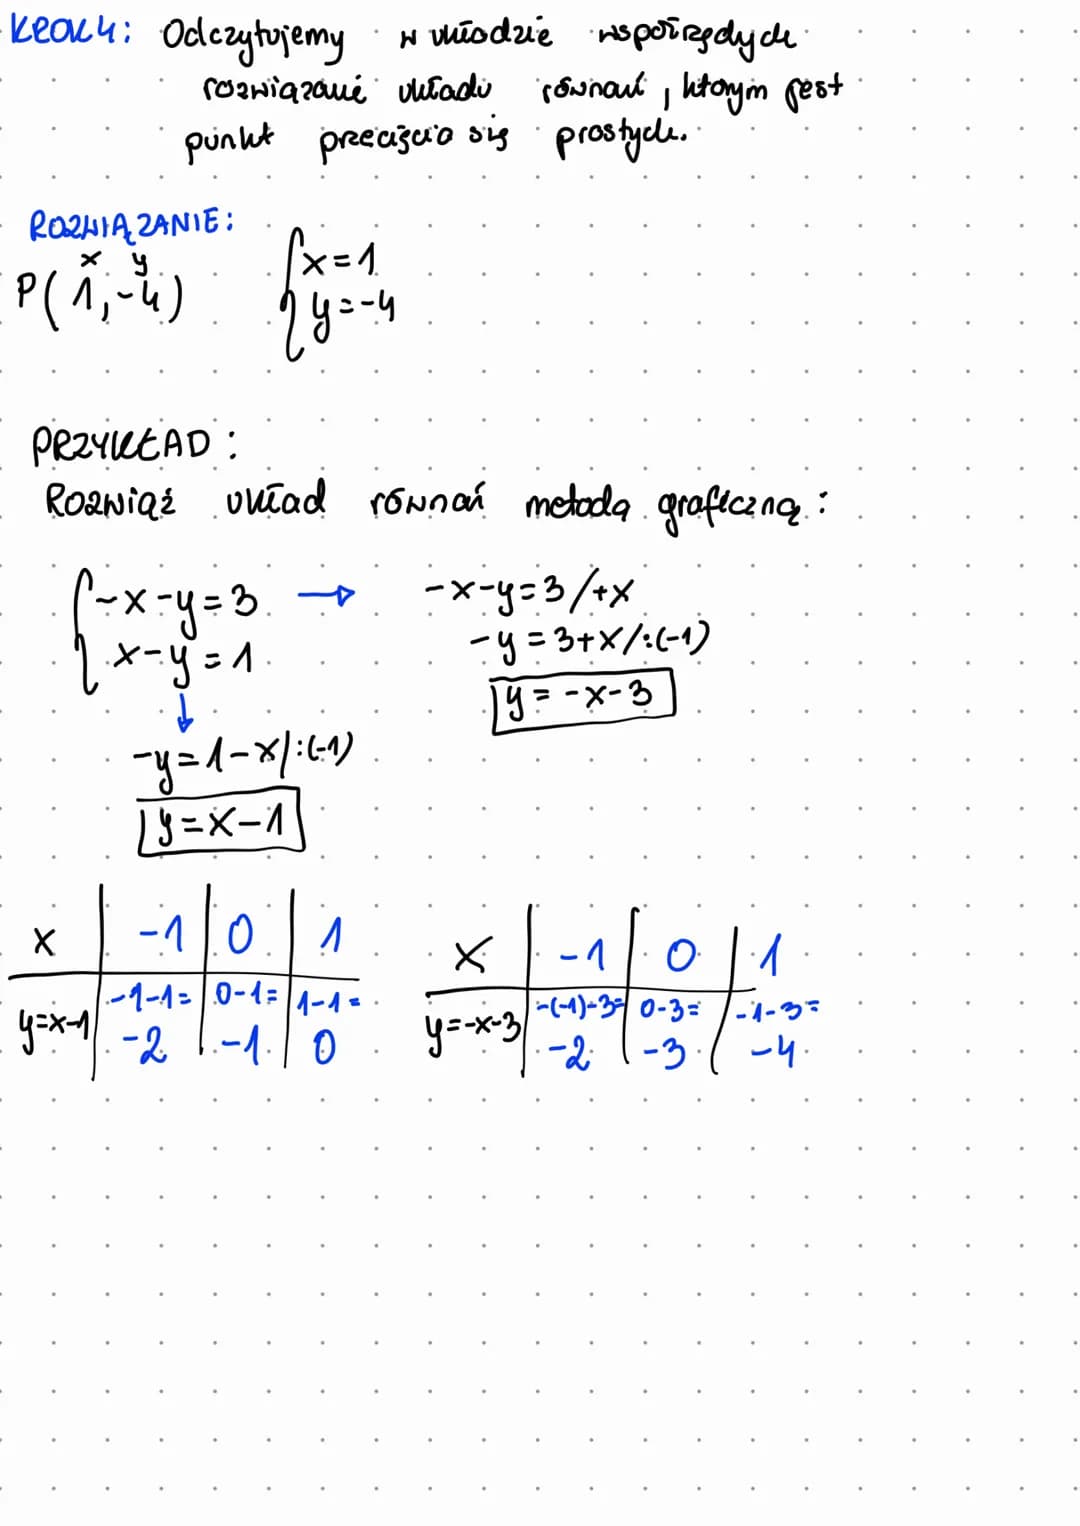 KROK 4: Odczytujemy w układzie współrzędych
rozwiązanie układu równań, którym jest
punkt przecięcia się prostych.
ROZWIĄZANIE:
x y
P(1,-4) {x=1
y=-4
PRZYKŁAD:
Rozwiąż układ równań metodą graficzną:
{-x-y=3 → -x-y=3/+x
x-y=1 -y=3+x/:(-1)
↓ y=-x-3
-y=1-x/:(-1)
y=x-1
x | -1 | 0 | 1
y=x-1 | -1-1= | 0-1= | 1-1=
-2 | -1 | 0
x | -1 | 0 | 1
y=-x-3 | -(-1)-3= | 0-3= | -1-3=
-2 | -3 | -4